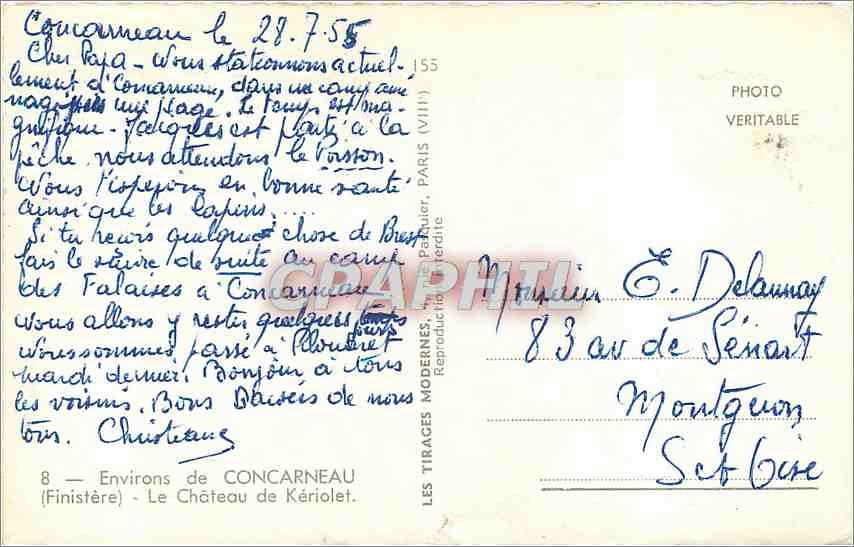 Concarneau le 28.7.55
Cher Papa - Nous stationnons actuel-
lement à Concarneau, dans un camp amé
nagé une plage. Le temps est ma-
gnifique - Jacques est parti à la
pêche, nous attendons le Poisson.
Nous t'espérons en bonne santé
ainsi que les lapins.....
Si tu reçois quelque chose de Brest
fais le suivre de suite au camp
des Falaises à Concarneau
Nous allons y rester quelques jours
Nous sommes passé à
mardi dernier. Bonjour à tous
les voisins. Bons Baisers de nous
tous. Christiane
8 — Environs de CONCARNEAU
(Finistère) - Le Château de Kériolet.
155
LES TIRAGES MODERNES, Pasquier, PARIS (VIIIe)
Reproduction interdite
CPAPHIL
PHOTO
VERITABLE
Monsieur E. Delaunay
83 av de Sénart
Montgeron
S et Oise